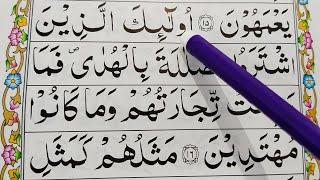 يَعْمَهُوْنَ ۝١٥ اُولٰٓئِكَ الَّذِيْنَ
اشْتَرَوُا الضَّلٰلَةَ بِالْهُدٰى ۪ فَمَا
تِّجَارَتُهُمْ وَمَا كَانُوْا
مُهْتَدِيْنَ ۝١٦ مَثَلُهُمْ كَمَثَلِ